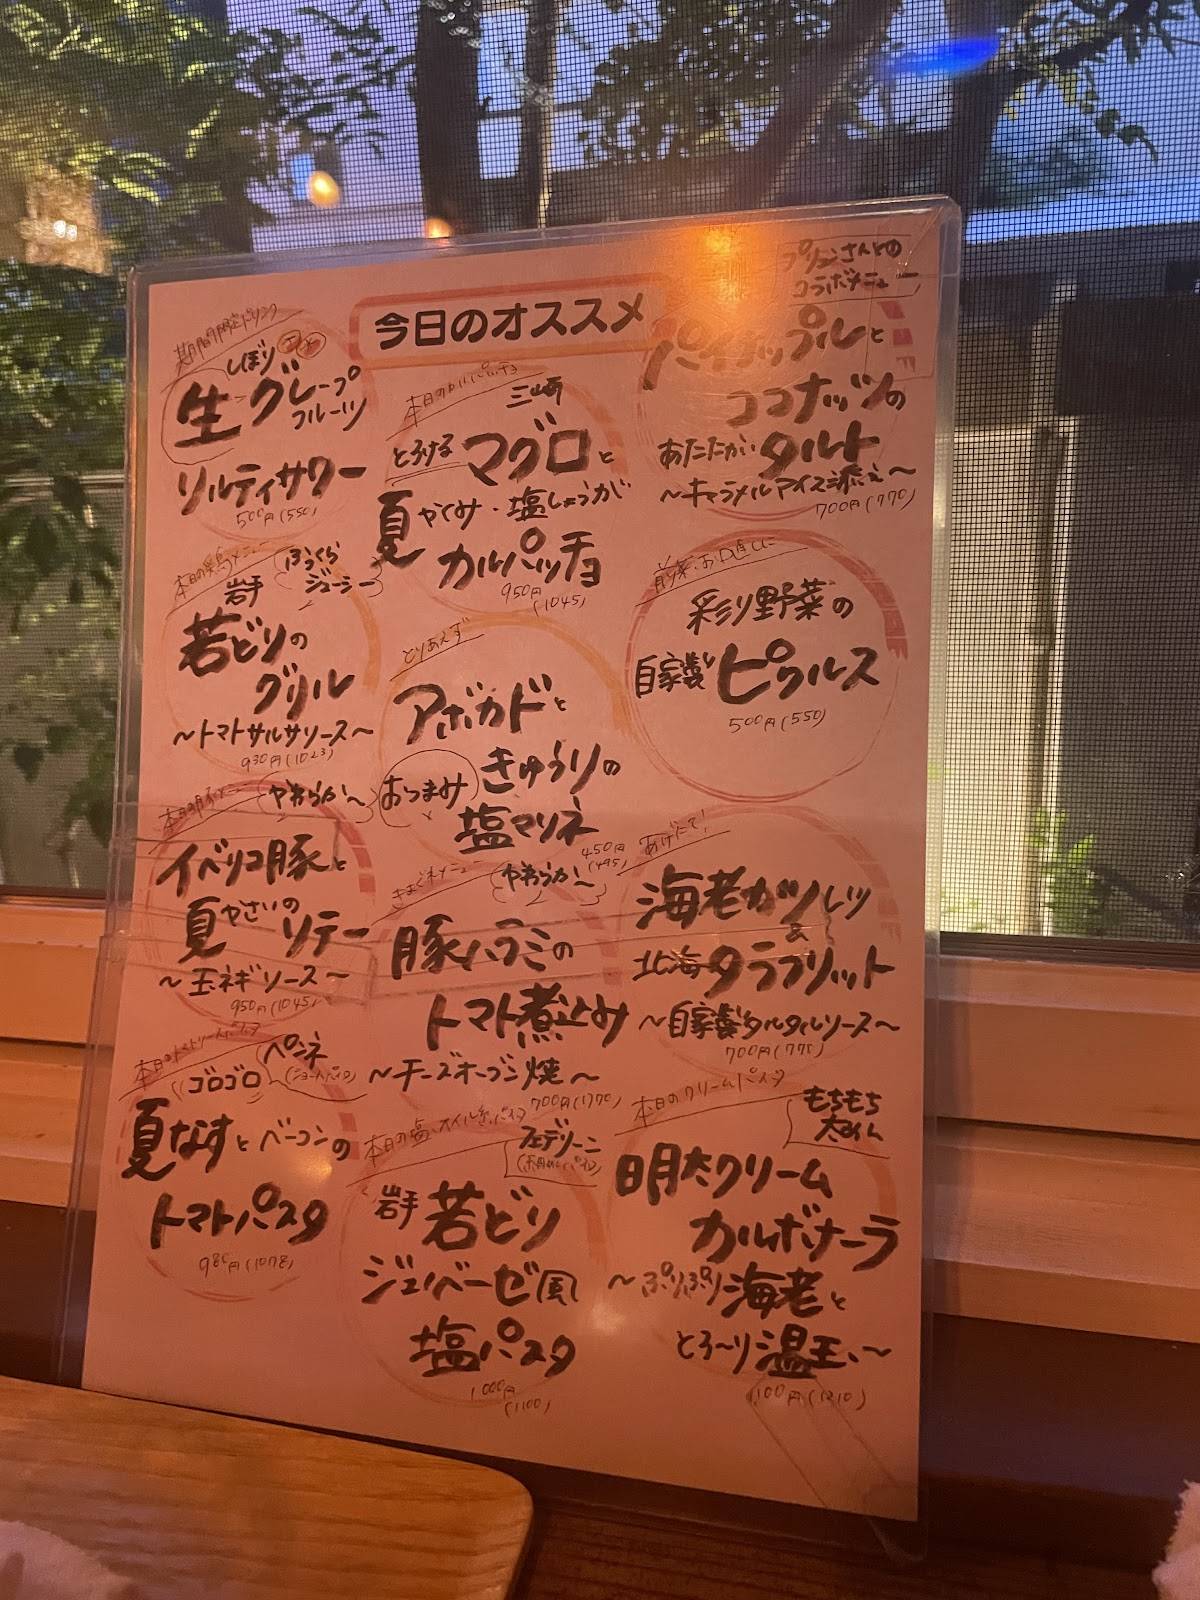 今日のオススメ
期間限定ドリンク
しぼり
生グレープ
フルーツ
ソルティサワー
500円(550)
本日のカルパッチョ
三崎
とろける マグロと
夏やくみ・塩しょうが
カルパッチョ
950円
(1045)
プリンさんとの
コラボメニュー
パイナップルと
ココナッツの
あたたかい タルト
〜キャラメルアイス添え〜
700円(770)
本日の鶏メニュー
岩手
ふっくら
ジューシー
若どりの
グリル
〜トマトサルサソース〜
930円(1023)
とりあえず
アボカドと
きゅうりの
おつまみ
塩マリネ
450円
(495)
前菜、お口直しに
彩り野菜の
自家製ピクルス
500円(550)
本日の豚メニュー
やわらか〜
イベリコ豚と
夏やさいの
ソテー
〜玉ネギソース〜
950円(1045)
きまぐれメニュー
やわらか〜
豚ハラミの
トマト煮込み
〜チーズオーブン焼〜
あげたて!
海老カツレツ
&
北海タラフリット
〜自家製タルタルソース〜
ゴロゴロ
ペンネ
(ショートパスタ)
夏なすとベーコンの
トマトパスタ
980円(1078)
フェデリーニ
岩手 若どり
ジェノベーゼ風
塩パスタ
1000円
(1100)
本日のクリームパスタ
もちもち
明太クリーム
カルボナーラ
〜ぷりぷり海老と
とろ〜り温玉、〜
1100円(1210)